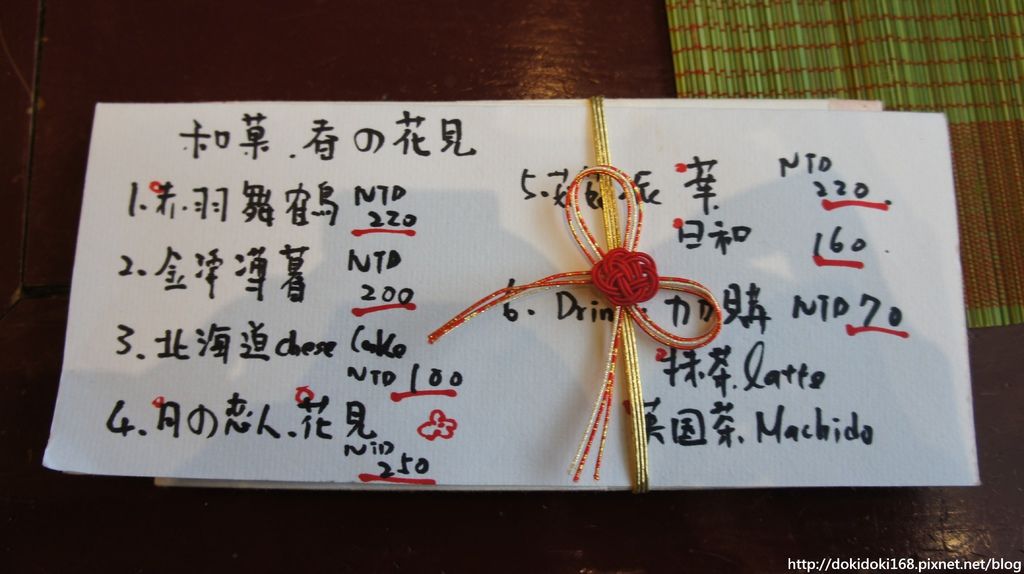 和菓.春の花見
1.赤.羽舞鶴 NTD
220
2.金澤薄暮 NTD
200
3.北海道cheese Cake
NTD 100
4.月の恋人.花見
NTD
250
5. 葉 NTD
220
日和 160
6. Drink.加購 NTD 70
抹茶.latte
英国茶.Machido
http://dokidoki168.pixnet.net/blog